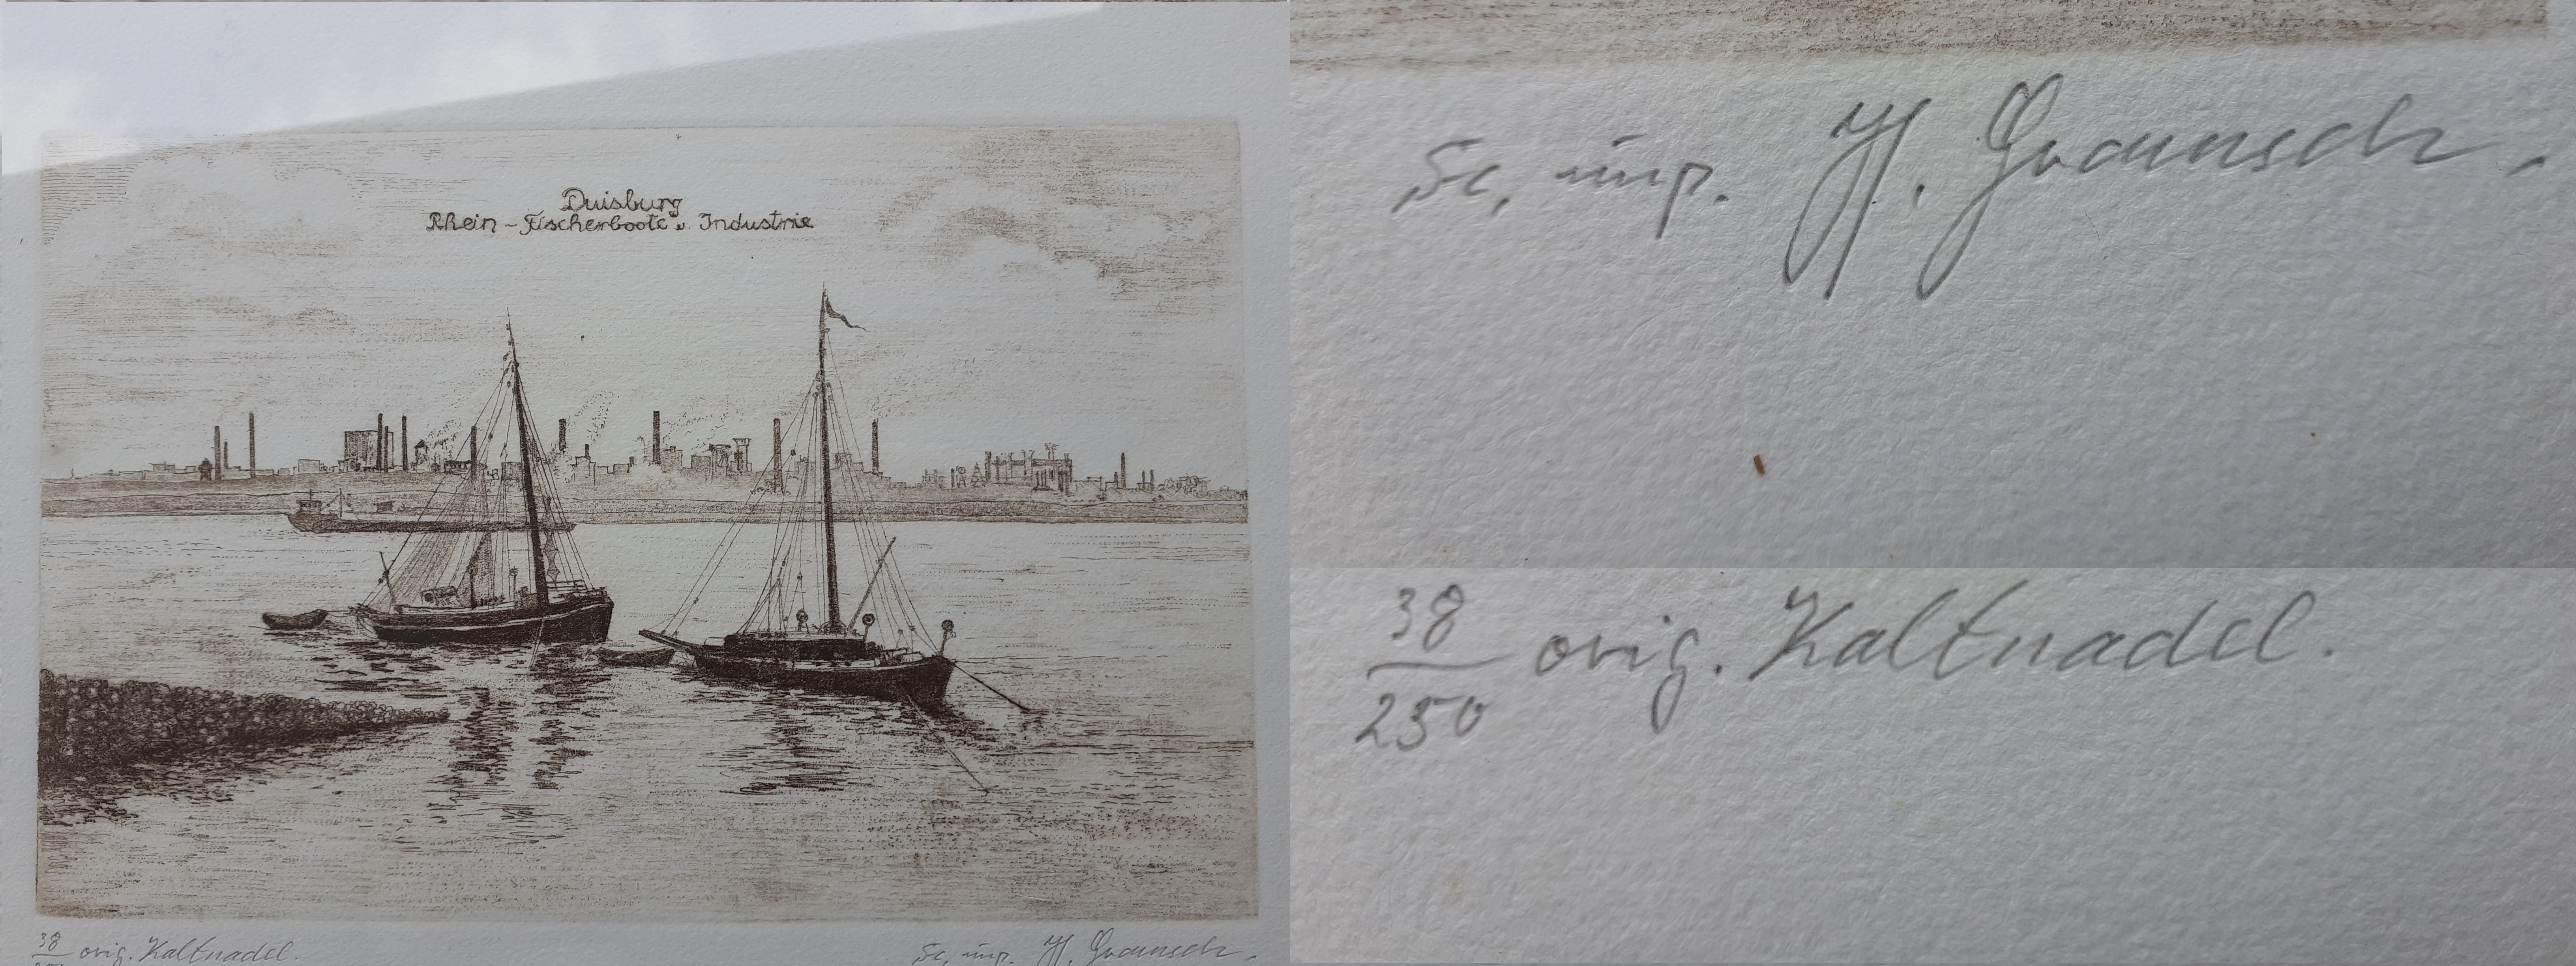 Duisburg
Rhein - Fischerboote u. Industrie
38 orig. Kaltnadel.
Sc, imp. H. Graunsch.
Sc, imp. H. Graunsch.
38
250
orig. Kaltnadel.